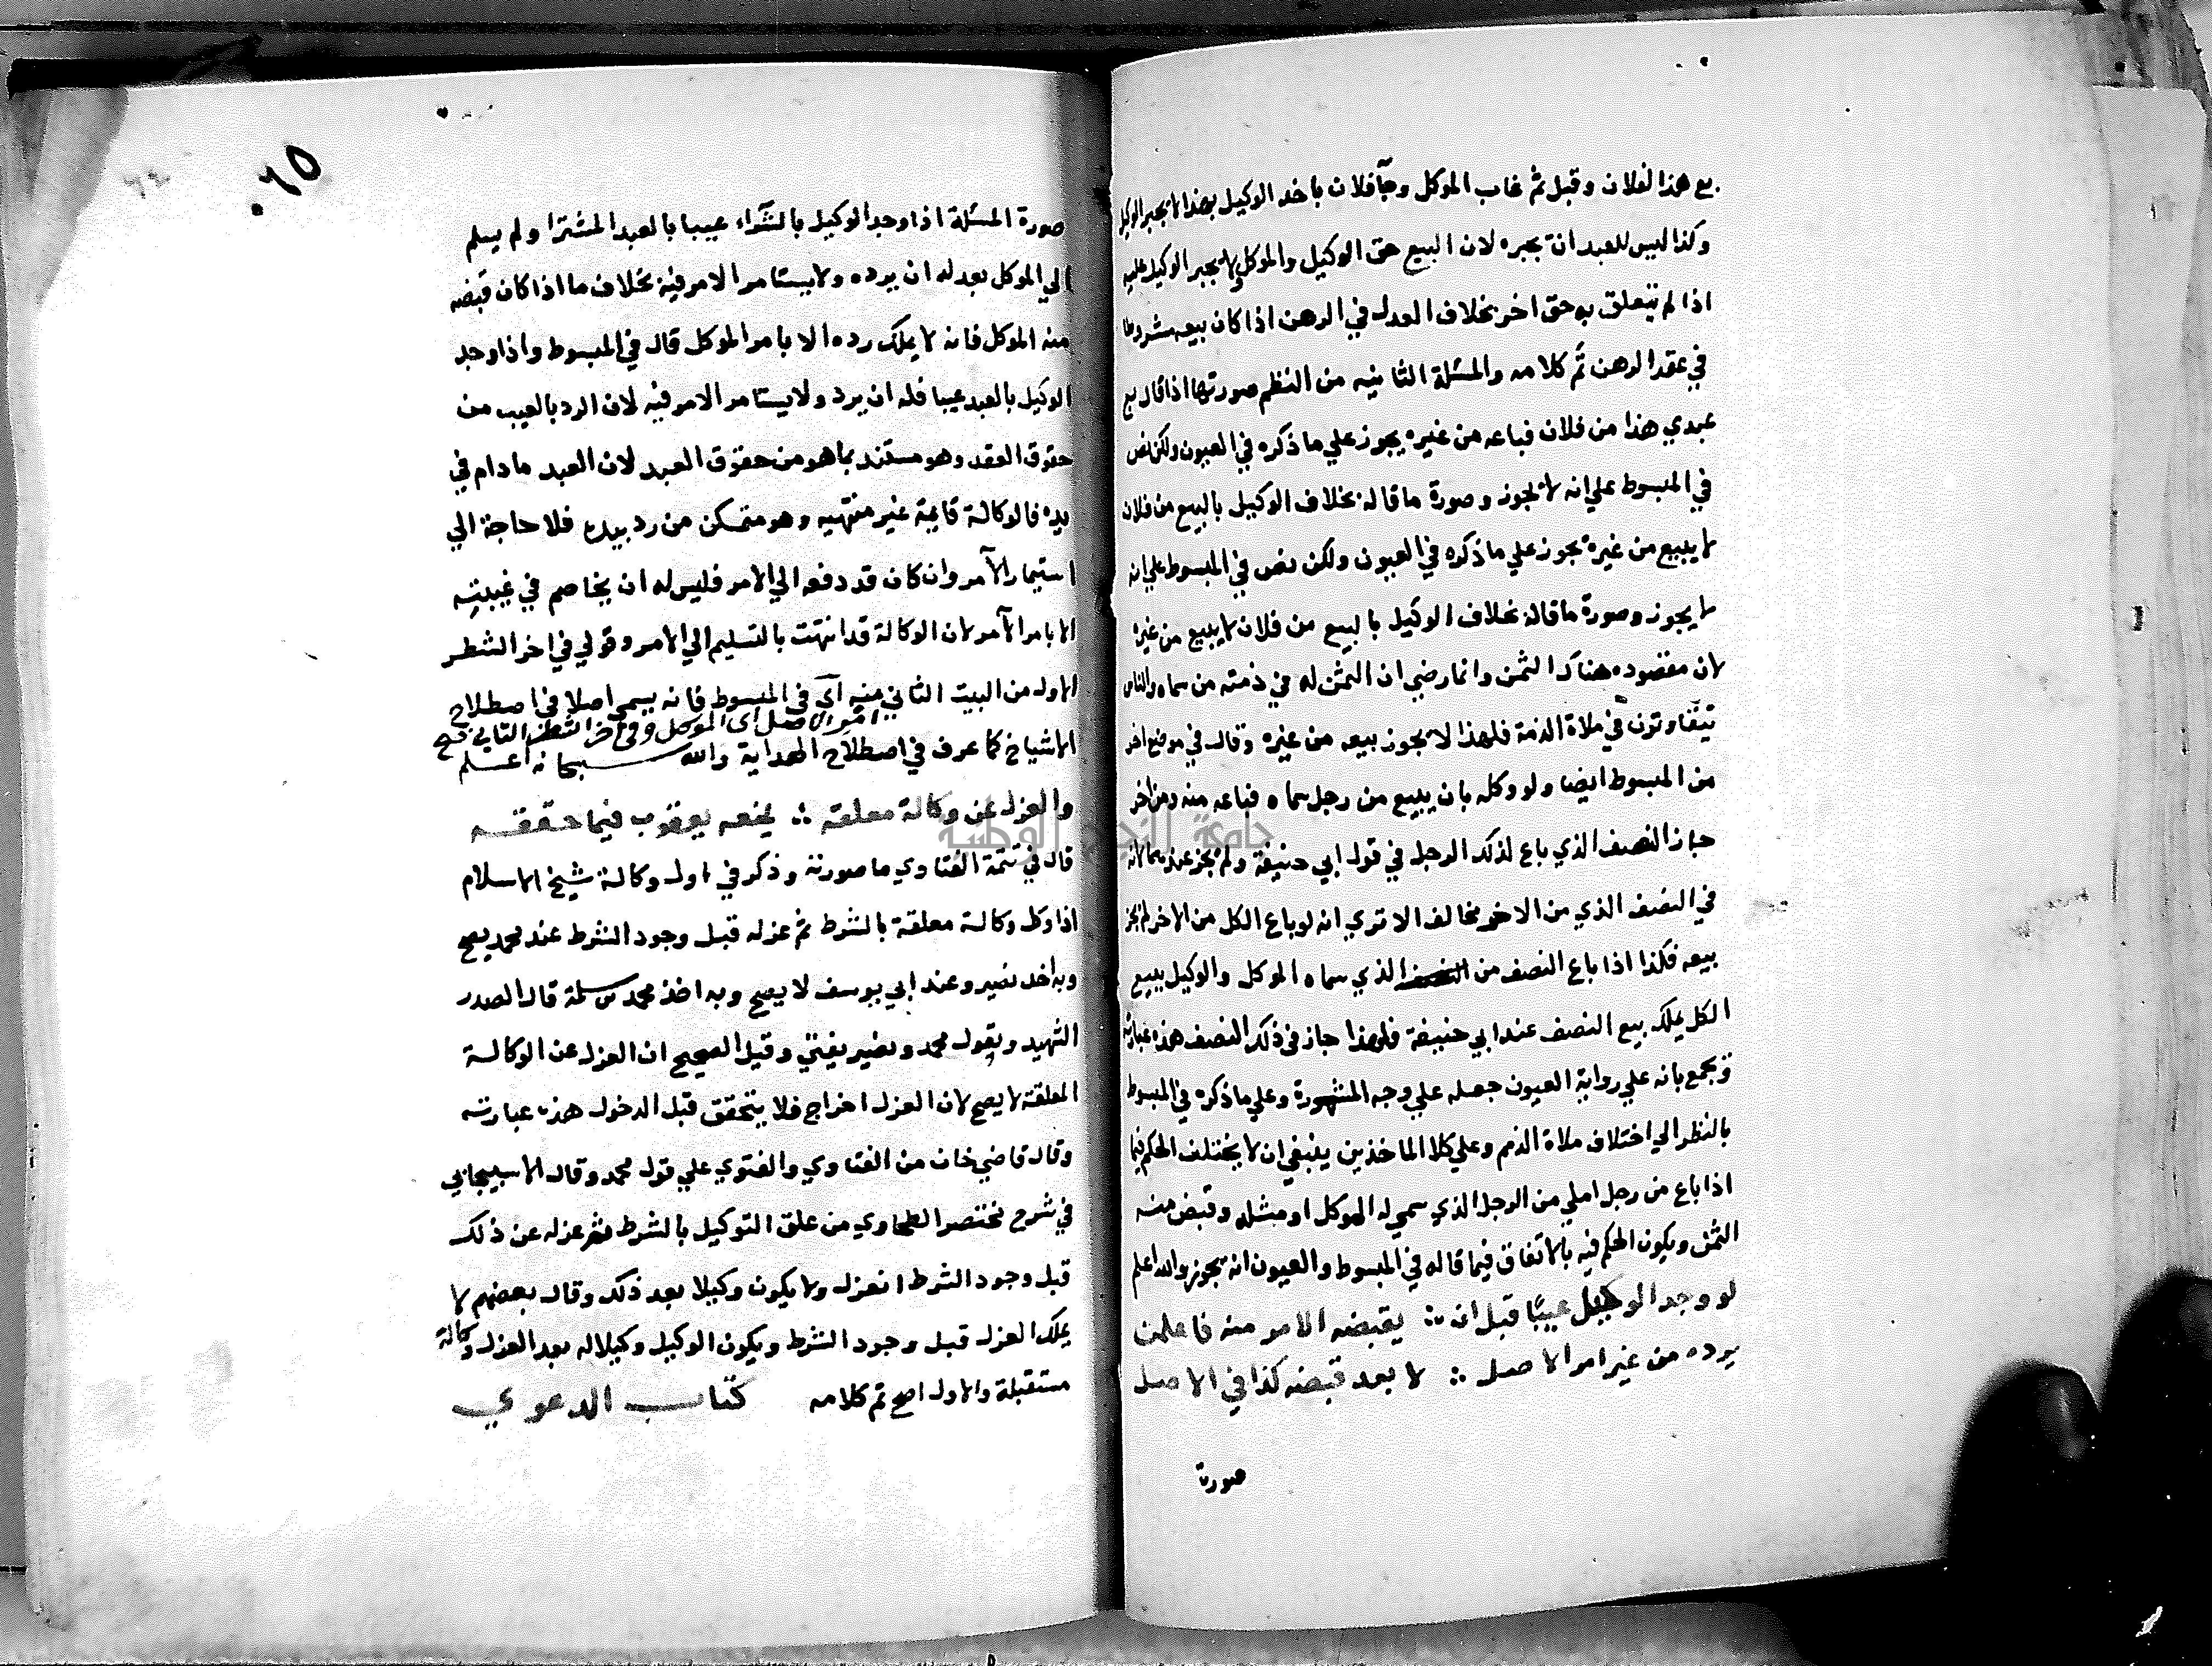 بع هذا لفلان وقبل ثم غاب الموكل وجآ فلان ياخد الوكيل بهذا لا يجبر الوكيل
وكذا ليس للعبد انه يجبره لان البيع حق الوكيل والموكل ولا يجبر الوكيل عليه
اذا لم يتعلق به حق اخر بخلاف العدل في الرهن اذا كان بيعه مشروطا
في عقد الرهن تم كلامه والمسئلة الثانيه من النظم صورتها اذا قال بع
عبدي هذا من فلان فباعه من غيره يجوز علي ما ذكره في العيون ولكن نص
في المبسوط علي انه لا يجوز وصورة ما قاله بخلاف الوكيل بالبيع من فلان
لا يبيع من غيره يجوز علي ما ذكره في العيون ولكن نص في المبسوط علي انه
لا يجوز وصورة ما قاله بخلاف الوكيل بالبيع من فلان لا يبيع من غيره
لان مقصوده هناك الثمن وانما رضي ان الثمن له في ذمته من سماه والناس
تيفاوتون في ملاة الذمة فلهذا لا يجوز بيعه من غيره وقال في موضع اخر
من المبسوط ايضا ولو وكله بان يبيع من رجل سماه فباعه منه ومن اخر
جاز النصف الذي باع لذلك الرجل في قول ابي حنيفة ولم يجز عندهما لانه
في النصف الذي من الاخر مخالف الا تري انه لو باع الكل من الاخر لم يجز
بيعه فكذا اذا باع النصف من الذي سماه الموكل والوكيل ببيع
الكل يملك بيع النصف عند ابي حنيفة فلهذا جاز في ذلك النصف هذه عبارته
وتجمع بانه علي رواية العيون جعله علي وجه المشهورة وعلي ما ذكره في المبسوط
بالنظر الي اختلاف ملاة الذمم وعلي كلا الماخذين ينبغي ان لا يختلف الحكم فيما
اذا باع من رجل املي من الرجل الذي سمي له الموكل او مثله وقبض منه
الثمن ويكون الحكم فيه بالاتفاق فيما قاله في المبسوط والعيون انه يجوز والله اعلم
لو وجد الوكيل عيبا قبل ان ∴ يقبضه الامر منه فاعلمن
يرده من غير امر الاصل ∴ لا بعد قبضه كذا في الاصل
صورة
٦٥
صورة المسئلة اذا وجد الوكيل بالشراء عيبا بالعبد المشترا ولم يسلم
الي الموكل بعد له ان يرده ولا يستامر الامر فيه بخلاف ما اذا كان قبضه
منه الموكل فانه لا يملك رده الا بامر الموكل قال في المبسوط واذا وجد
الوكيل بالعبد عيبا فله ان يرد ولا يستامر الامر فيه لان الرد بالعيب من
حقوق العقد وهو مستند بما هو من حقوق العبد لان العبد ما دام في
يده فالوكالة قايمة غير منتهيه وهو متمكن من رد بيده فلا حاجة الي
استيمار الآمر وان كان قد دفعه الي الامر فليس له ان يخاصم في غيبته
الا بامر الآمر لان الوكالة قد انتهت بالتسليم الي الامر وقولي في اخر الشطر
الاول من البيت الثاني منه آي في المبسوط فانه يسمي اصلا في اصطلاح
امر الاصل اى الموكل وفي اخر الشطر الثاني
الاشياخ كما عرف في اصطلاح الهداية والله سبحانه اعلم
والعزل عن وكالة معلقه ∴ يمنعه يعقوب فيما حققه
قال في تتمة الفتاوي ما صورته وذكر في اول وكالة شيخ الاسلام
اذا وكل وكالة معلقة بالشرط ثم عزله قبل وجود الشرط عند محمد يصح
وبه اخد نصير وعند ابي يوسف لا يصح وبه اخذ محمد بن سلمة قال الصدر
الشهيد وبقول محمد ونصير يفتي وقيل الصحيح ان العزل عن الوكالة
المعلقة لا يصح لان العزل اخراج فلا يتحقق قبل الدخول هذه عبارته
وقال قاضي خان من الفتاوي والفتوي علي قول محمد وقال الاسبيجابي
في شرح مختصر الطحاوي من علق التوكيل بالشرط ثم عزله عن ذلك
قبل وجود الشرط انعزل ولا يكون وكيلا بعد ذلك وقال بعضهم لا
يملك العزل قبل وجود الشرط ويكون الوكيل وكيلا له بعد العزل وكالة
مستقبلة والاول اصح تم كلامه كتاب الدعوي
جامعة النجاح الوطنية